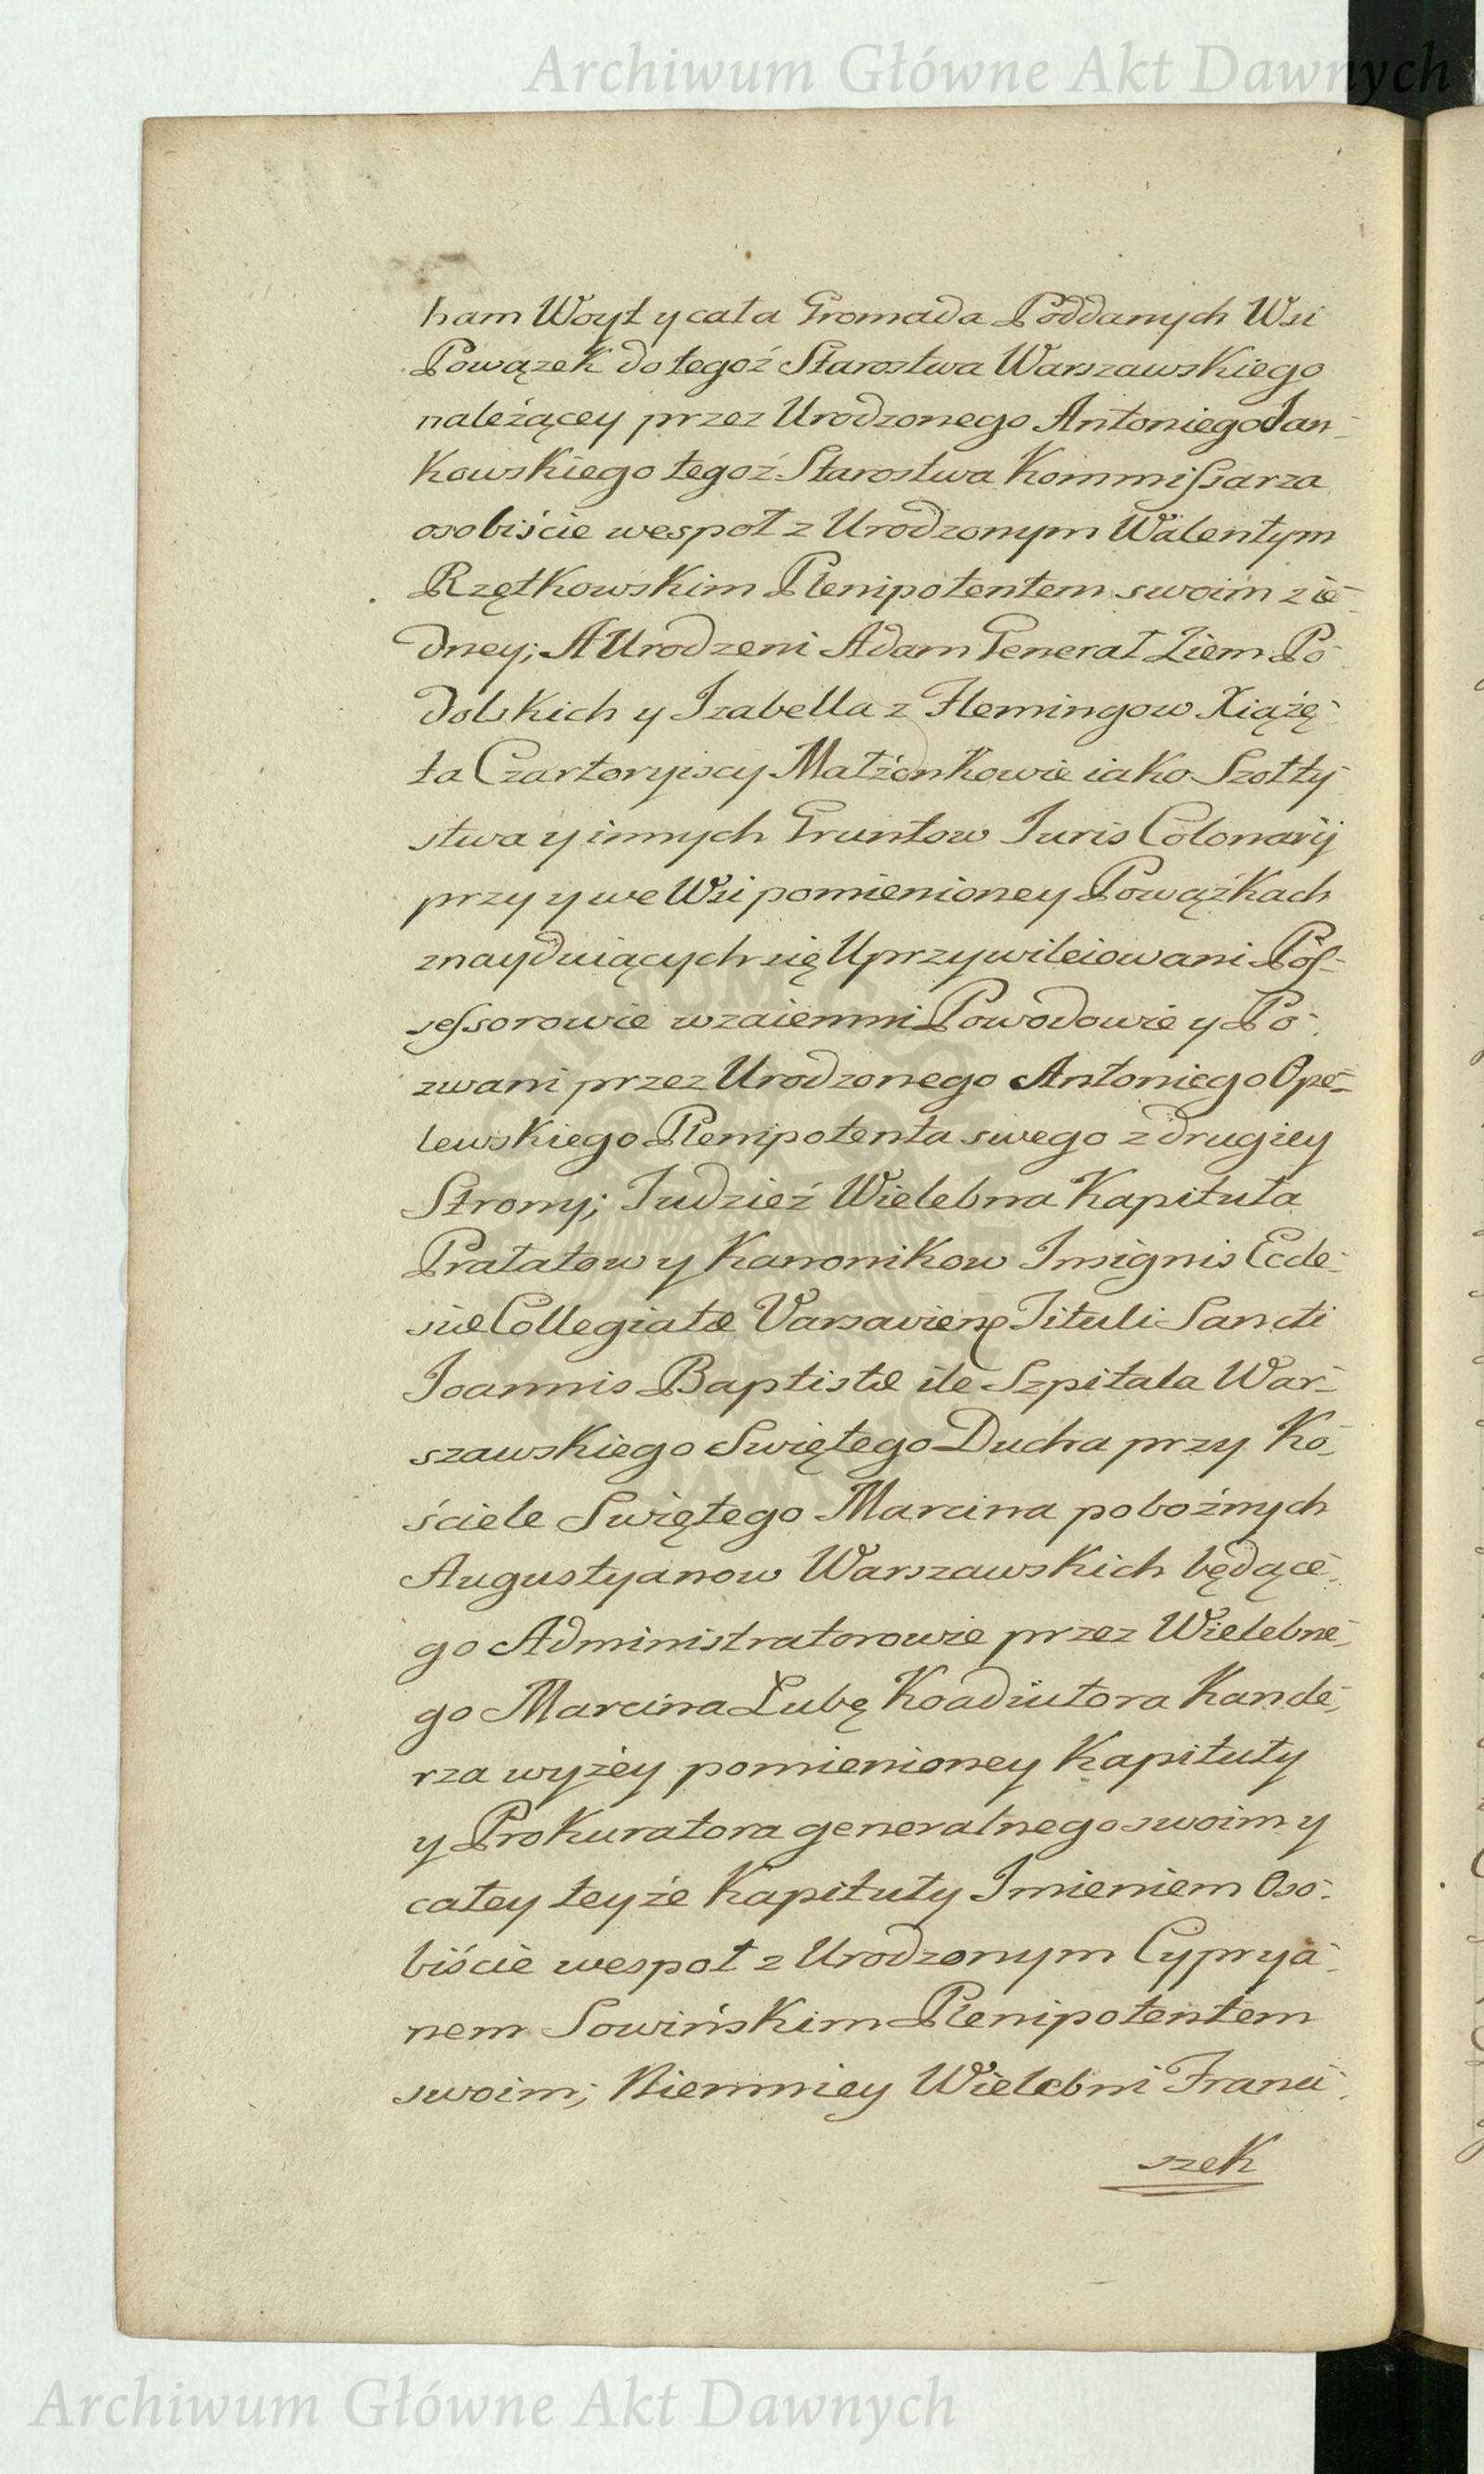 Archiwum Główne Akt Dawnych
ham Woyt y cała Gromada Poddanych Wsi
Powązek do tegoż Starostwa Warszawskiego
należącey przez Urodzonego Antoniego Jan-
kowskiego tegoż Starostwa Kommissarza
osobiście wespoł z Urodzonym Walentym
Rzętkowskim Plenipotentem swoim z ie-
dney; A Urodzeni Adam Generał Ziem Po-
dolskich y Izabella z Flemingow Xiążę-
ta Czartoryiscy Małżonkowie iako Szołty-
stwa y innych Gruntow Iuris Colonarij
przy y we Wsi pomienioney Powążkach
znayduiących się Uprzywileiowani Pos-
sessorowie wzaiemni Powodowie y Po-
zwani przez Urodzonego Antoniego Ope-
lewskiego Plenipotenta swego z drugiey
Strony; Tudzież Wielebna Kapituła
Prałatow y Kanonikow Insignis Eccle-
siæ Collegiatæ Varsavien Tituli Sancti
Ioannis Baptistæ ile Szpitala War-
szawskiego Swiętego Ducha przy Ko-
ściele Swiętego Marcina pobożnych
Augustyanow Warszawskich będące-
go Administratorowie przez Wielebne-
go Marcina Lubę Koadiutora Kancle-
rza wyżey pomienioney Kapituły
y Prokuratora generalnego swoim y
całey teyże Kapituły Imieniem Oso-
biście wespoł z Urodzonym Cyprya-
nem Sowińskim Plenipotentem
swoim; Niemniey Wielebni Franci-
szek
Archiwum Główne Akt Dawnych